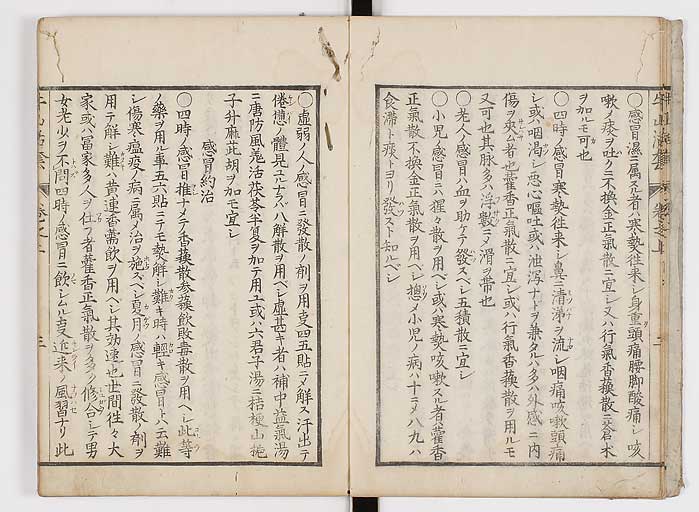 ○感冒濕ニ属スル者ハ寒熱往来シ身重頭痛腰脚酸痛シ咳
嗽メ痰ヲ吐クニ不換金正氣散ニ宜シ又ハ行氣香蘓散ニ蒼朮
ヲ加ルモ可也
○四時ノ感冒寒熱往来シ鼻ニ清涕ヲ流シ咽痛咳嗽頭痛
シ或ハ咽渇シ悪心嘔吐或ハ泄瀉ナドヲ兼タルハ多ハ外感ニ内
傷ヲ夾ム者也藿香正氣散ニ宜シ或ハ行氣香蘓散ヲ用ルモ
又可也其脉多ハ浮数ニメ滑ヲ帯也
○老人ノ感冒ハ血ヲ助ケテ發スベシ五積散ニ宜シ
○小児ノ感冒ニハ惺々散ヲ用ベシ或ハ寒熱咳嗽スル者ハ藿香
正氣散不換金正氣散ヲ用ベシ摠メ小児ノ病ハ十ニメ八九ハ
食滞ト痰トヨリ發スト知ルベシ
○虚弱ノ人ノ感冒ニ發散ノ剤ヲ用支四五貼ニメ解ス汗出テ
倦憊ノ體見エナラバ八解散ヲ用ベシ虚甚キ者ハ補中益氣湯
ニ唐防風羗活茯苓半夏ヲ加テ用ユ或ハ六君子湯ニ桔梗山梔
子升麻茈胡ヲ加モ宜シ
感冒約治
○四時ノ感冒推ナメテ香蘓散参蘓飲敗毒散ヲ用ベシ此等
ノ藥ヲ用ル事五六貼ニテモ熱解シ難キ時ハ軽キ感冒トハ云難
シ傷寒瘟疫ノ病ニ属メ治ヲ施スベシ夏月ノ感冒ニ發散ノ剤ヲ
用テ解シ難ハ黄連香薷飲ヲ用ベシ其効速也世間往々大
家或ハ冨家多ク人ヲ仕フ者藿香正氣散ヲ多ク修合シテ男
女老少ヲ不問四時ノ感冒ニ飲シムル支近来ノ風習ナリ此